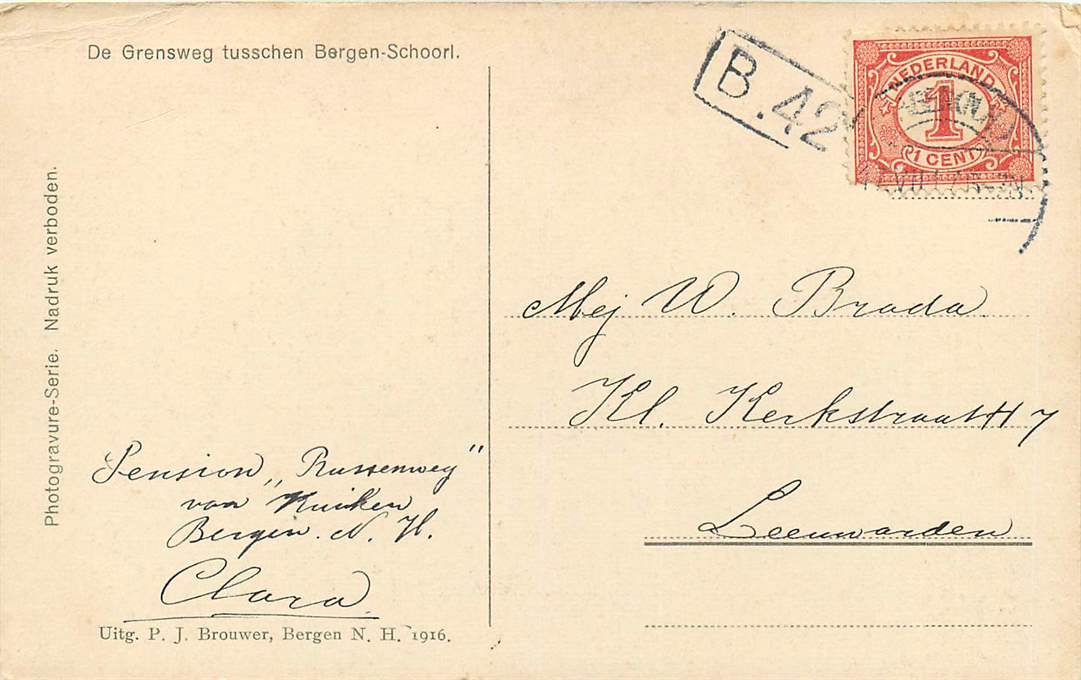 De Grensweg tusschen Bergen-Schoorl.
B.42
NEDERLAND
1
1 CENT
Photogravure-Serie. Nadruk verboden.
Mej W. Brada.
Kl. Kerkstraat 7
Leeuwarden
Pension „Russenweg"
van Kuiken
Bergen. N. H.
Clara
Uitg. P. J. Brouwer, Bergen N. H. 1916.